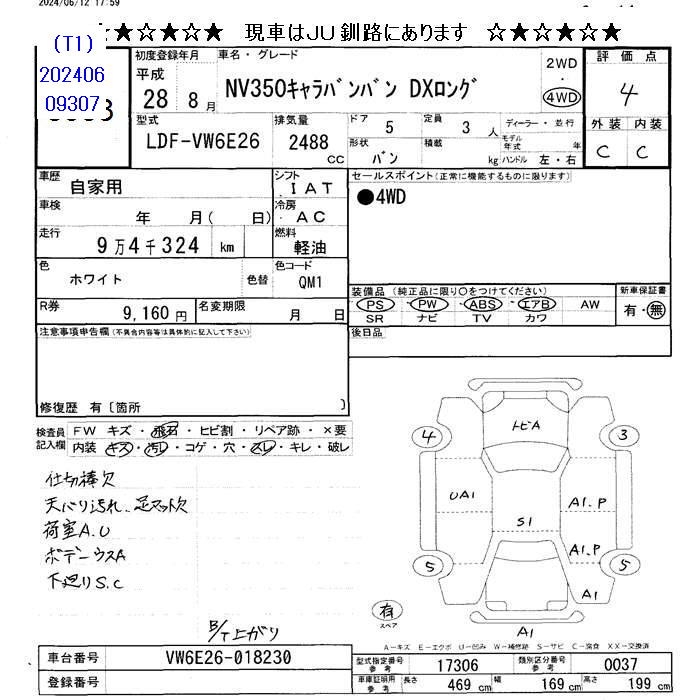 2024/06/12 17:59
☆★☆★☆ 現車はJU釧路にあります ☆★☆★☆
(T1)
202406
09307
初度登録年月
平成
28年 8月
車名・グレード
NV350キャラバンバン DXロング
2WD
・
4WD
評価点
4
型式
LDF-VW6E26
排気量
2488
CC
ドア 5
定員 3 人
形状 バン
積載 kg
ディーラー・並行
モデル年式 年
ハンドル 左・右
外装 内装
C C
車歴 自家用
シフト IAT
車検 年 月( 日)
冷房 AC
走行 9万4千324 km
燃料 軽油
色 ホワイト 色替
色コード QM1
R券 9,160円
名変期限 月 日
セールスポイント(正常に機能するものに限ります)
●4WD
装備品(純正品に限り○をつけてください)
PS PW ABS エアB AW
SR ナビ TV カワ
新車保証書
有・無
後日品
注意事項申告欄(不具合内容等は具体的に記入して下さい)
修復歴 有〔箇所 〕
検査員記入欄
FW キズ・飛石・ヒビ割・リペア跡・×要
内装 キズ・汚れ・コゲ・穴・スレ・キレ・破レ
仕切棒欠
天ハリ汚れ、足マット欠
荷室A.U
ボデーウスA
下廻りS.C
B/T上がり
トビA
4
3
UA1
S1
A1.P
A1.P
5
5
A1
A1
有
スペア
A-キズ E-エクボ U-凹み W-補修跡 S-サビ C-腐食 XX-交換済
車台番号 VW6E26-018230
登録番号
型式指定番号 参考 17306
類別区分番号 参考 0037
車庫証明用 参考 長さ 469 cm 幅 169 cm 高さ 199 cm